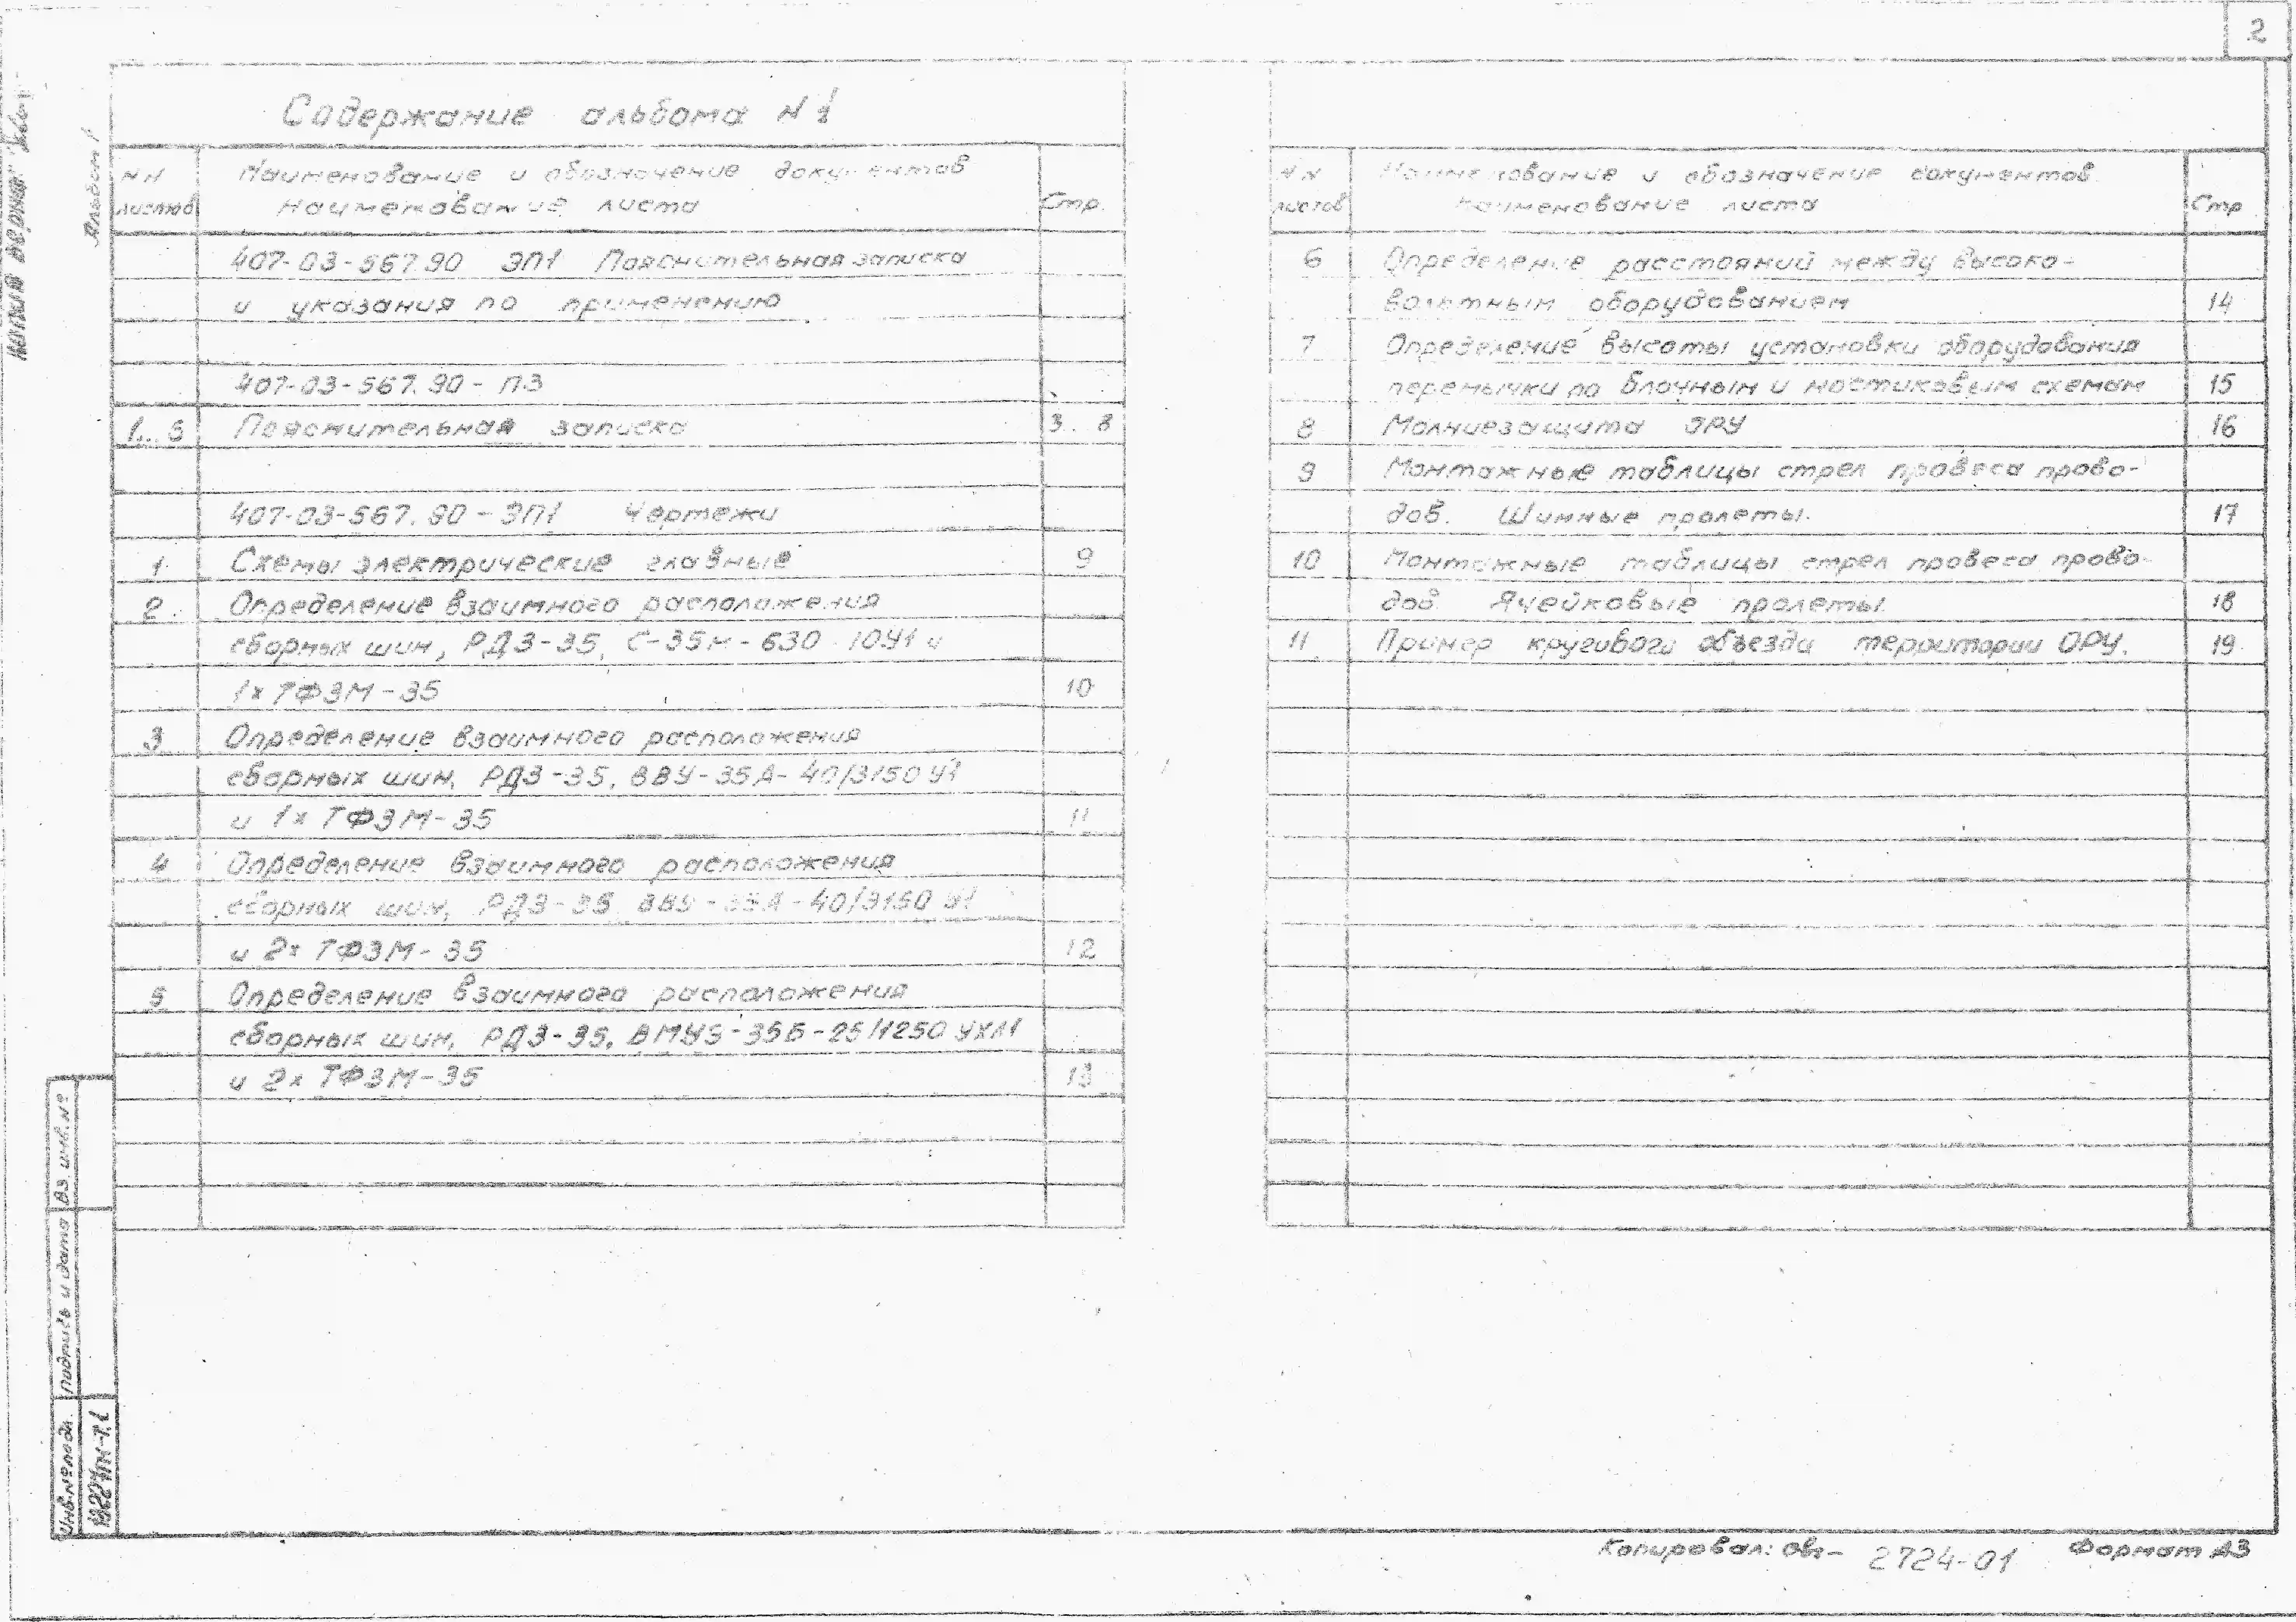 2
Содержание альбома N 1
NN листов
Наименование и обозначение документов
Наименование листа
Стр.
407-03-567.90 ЭП1 Пояснительная записка
и указания по применению
407-03-567.90 - ПЗ
1...6 Пояснительная записка 3..8
407-03-567.90 - ЭП1 Чертежи
1 Схемы электрические главные 9
2 Определение взаимного расположения
сборных шин, РДЗ-35, С-35м-630-10У1 и
1х ТФЗМ-35 10
3 Определение взаимного расположения
сборных шин, РДЗ-35, ВВУ-35А-40/3150 У1
и 1х ТФЗМ-35 11
4 Определение взаимного расположения
сборных шин, РДЗ-35, ВВУ-35А-40/3150 У1
и 2х ТФЗМ-35 12
5 Определение взаимного расположения
сборных шин, РДЗ-35, ВМУЭ-35Б-25/1250 УХЛ1
и 2х ТФЗМ-35 13
NN листов
Наименование и обозначение документов
Наименование листа
Стр
6 Определение расстояний между высоко-
вольтным оборудованием 14
7 Определение высоты установки оборудования
перемычки по блочным и мостиковым схемам 15
8 Молниезащита ОРУ 16
9 Монтажные таблицы стрел провеса прово-
дов. Шинные пролеты. 17
10 Монтажные таблицы стрел провеса прово-
дов. Ячейковые пролеты. 18
11 Пример кругового объезда территории ОРУ. 19
Альбом 1
Копия верна:
Вз. инв. №
Подпись и дата
Инв. № подл.
Копировал:
2724-01
Формат А3